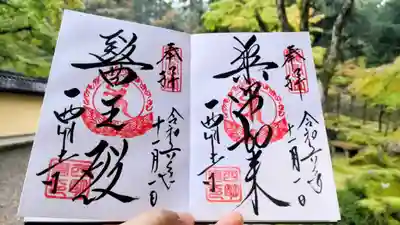 奉拝
薬師如来
令和六年
十一月一日
西明寺
奉拝
醫王殿
令和六年
十一月一日
西明寺